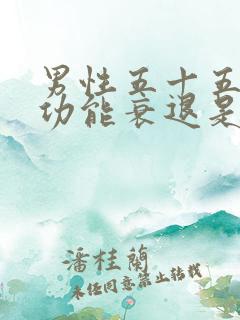 男性五十五
功能衰退是
潘桂蘭
未经同意禁止转载